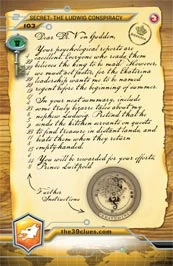 SECRET: THE LUDWIG CONSPIRACY
103
Dear Dr. Von Gudden,
Your psychological reports are
excellent. Everyone who reads them
believes the king to be mad. However,
we must act faster, for the Ekaterina
leadership wants me to be named
regent before the beginning of summer.
In your next summary, include
some truly bizarre tales about my
nephew Ludwig. Pretend that he
sends the kitchen servants on quests
to find treasure in distant lands, and
hates them when they return
emptyhanded.
You will be rewarded for your efforts,
Prince Luitpold
Further
Instructions
the39clues.com